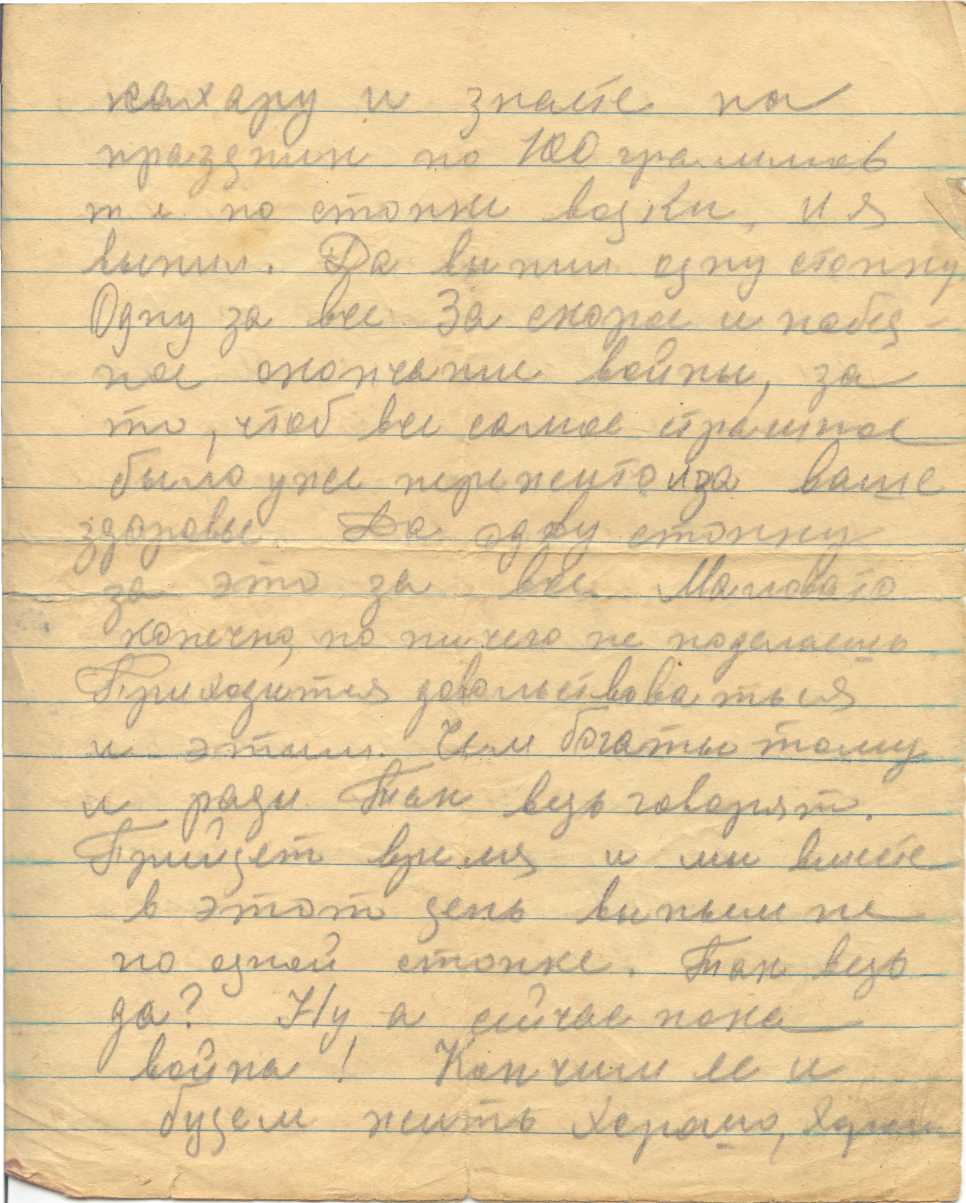 сахару и знаете на
праздник по 100 граммов
т.е. по стопке водки, и я
выпил. Да выпил одну стопку
Одну за все За скорое и побед-
ное окончание войны, за
то, чтоб все самое страшное
было уже пережито и за ваше
здоровье. Да одну стопку
за это за все. Маловато
конечно, но ничего не поделаешь
Приходится довольствоваться
и этим. Чем богаты тому
и рады. Так ведь говорят.
Прийдет время и мы вместе
в этот день выпьем не
по одной стопке. Так ведь
да? Ну а сейчас пока
война! Кончим ее и
будем жить хорошо,